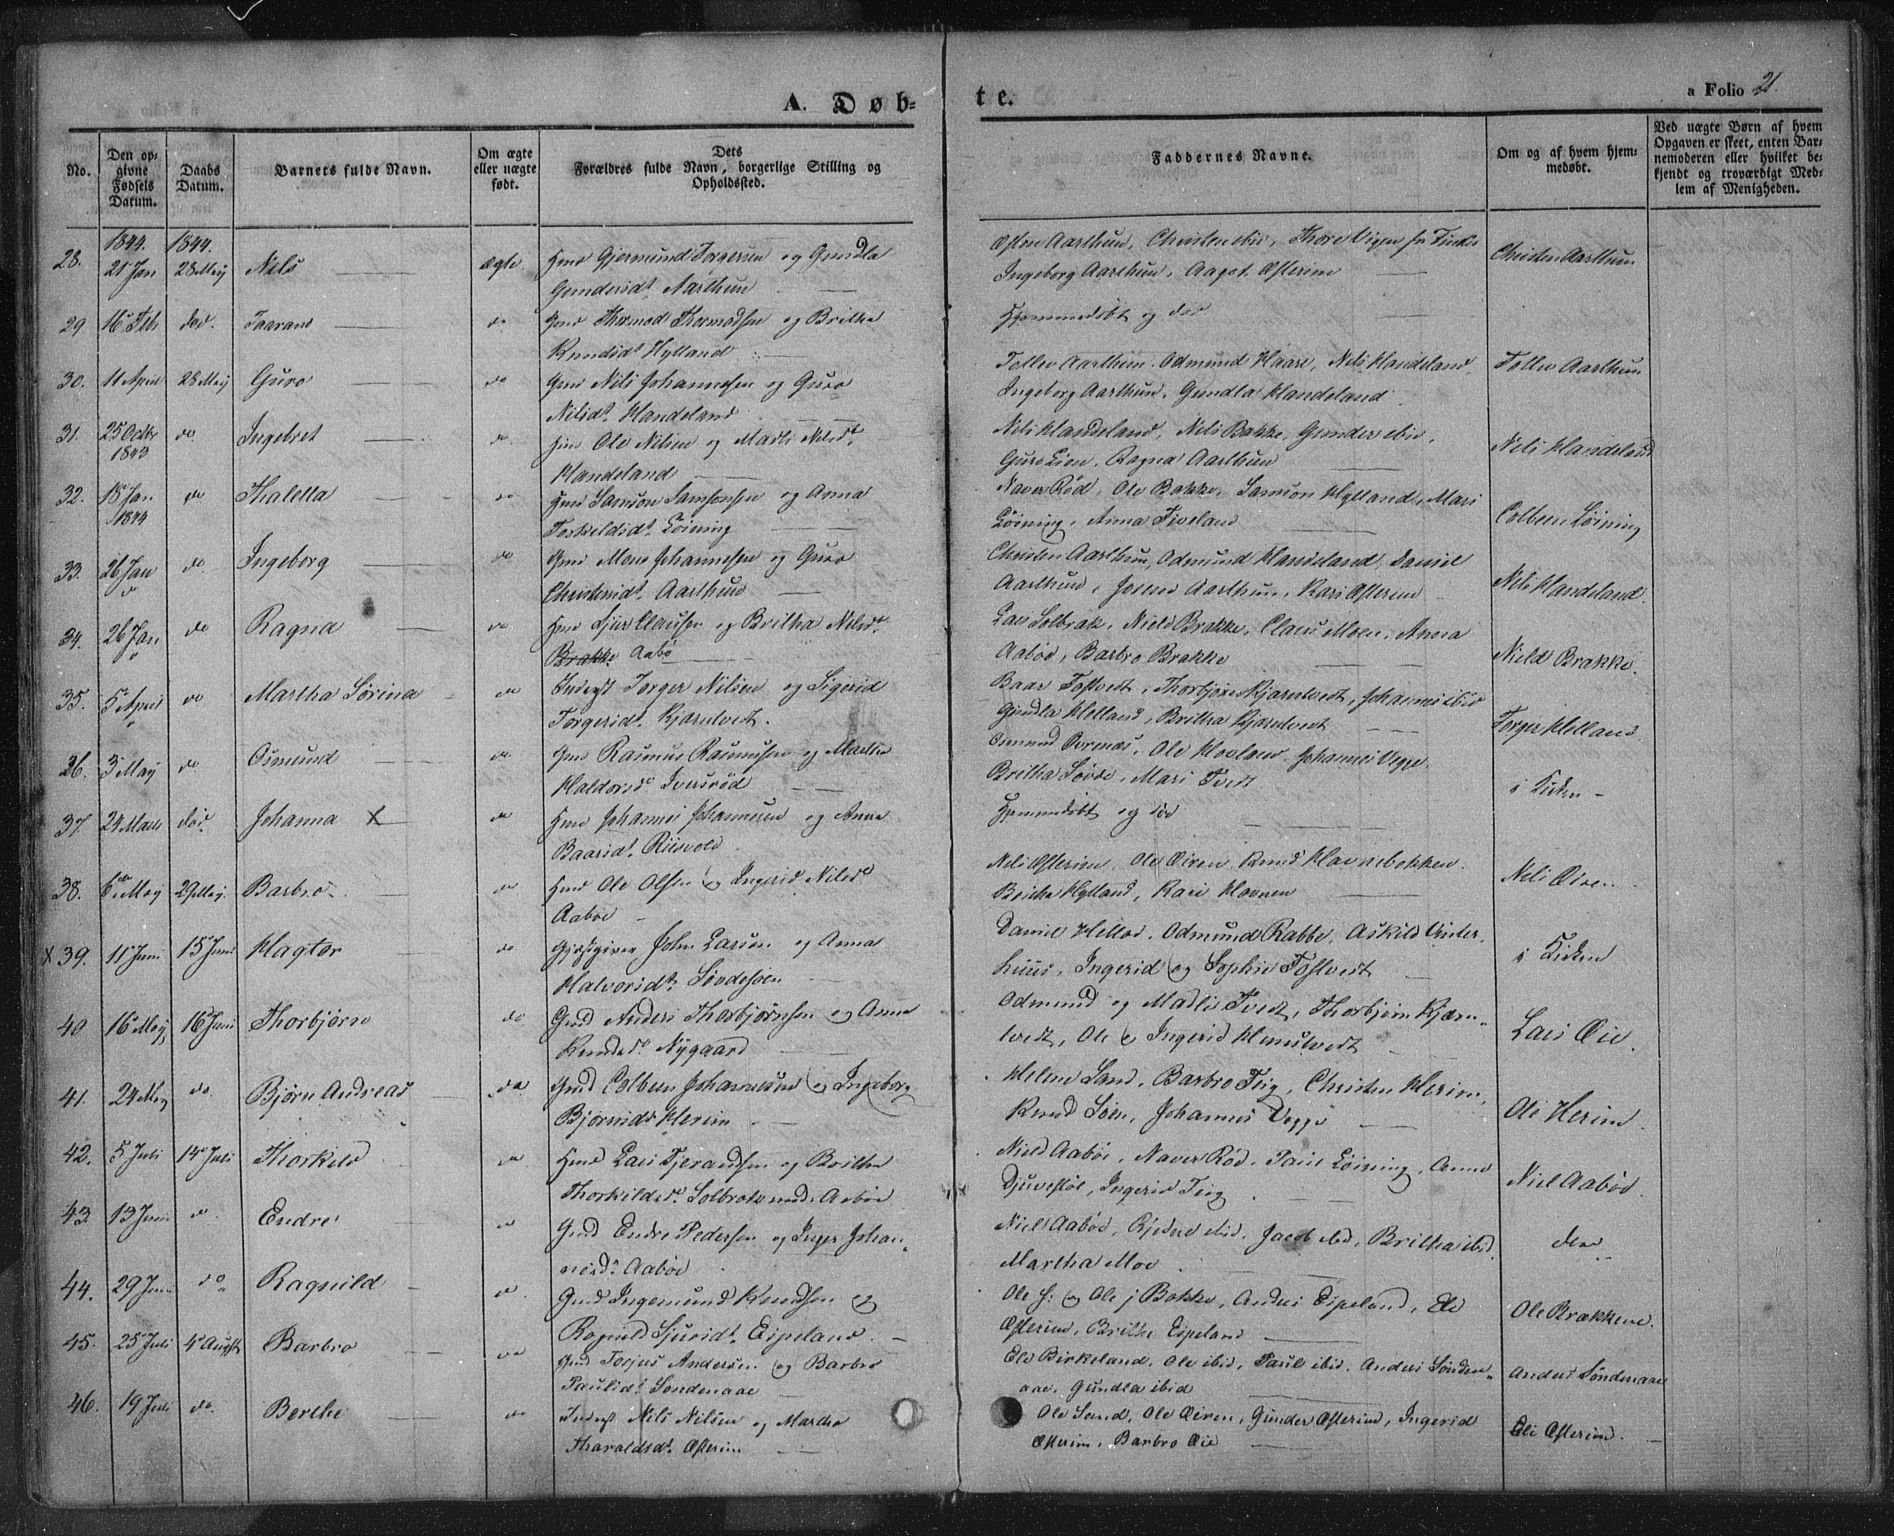 A. Døb-
te.
a Folio 21.
No.
Den op-
givne
Fødsels
Datum.
Daabs
Datum.
Barnets fulde Navn.
Om ægte
eller uægte
født.
Dets
Forældres fulde Navn, borgerlige Stilling og
Opholdssted.
Faddernes Navne.
Om og af hvem hjem-
medøbt.
Ved uægte Børn af hvem
Opgaven er skeet, enten Bar-
nemoderen eller hvilket be-
kjendt og troværdigt Med-
lem af Menigheden.
1844. 1844.
28. 21 Jan 28 Maij Nels ægte. Gjermund Torgersen og Gundla
Gundersdt. Aarthun
Aarthun, Christen ibid, Thore Vigen
Ingeborg Aarthun, Aagot Østerim
Christen Aarthun
29 16 Feb død. Taarand do Thormod Thormodsen og Britha
Knudsdt Hylland
Hjemmedøbt og død
30. 11 April 28 Maij Guro do Nils Johannesen og Guro
Nilsdt. Handeland
Tollev Aarthun. Odmund Haare, Nils Handeland,
Ingeborg Aarthun, Gundla Handeland
Tollev Aarthun
31. 25 Octbr do Ingebret do Ole Nilsen og Madli Nilsdt.
1843
Handeland
Nels Handeland, Nels Bakke, Gunder ibid,
Guro Lien, Ragna Aarthun
Nils Handeland
32. 18 Jan do Thaletta do Samson Samsonsen og Anna
1844
Torkeldsdt. Løining
Naver Rød, Ole Bakke, Samson Hylland, Mari
Løining, Anna Fiveland
Colbeen Løining
33. 26 Jan do. Ingeborg do Mons Johannesen og Guro
Christensdt. Aarthun
Christen Aarthun, Odmund Handeland, Daniel
Aarthun, Aarthun, Kari Østerim
Nils Handeland.
34. 26 Jan do Ragna do Sjur Clausen og Britha Nilsdt.
Brakke Aabø
Lars Solbrak, Niels Brakke, Claus Moen, Anna
Aabøe, Barbro Brakke
Nield Brakke.
35. 5 April do Martha Sørina do Inderst Torger Nilsen og Sigerid
Torgersdt. Kjærnlvedt.
Baar Fosltvedt, Thorbjørn Kjærnlvedt, Johannes ibid
Gundla Helland, Britha Kjærnlvedt
Torger Helland.
36. 3 Maij do Osmund do Rasmus Rasmussen og Martha
Haldorsdt Iversrød
Osmund Ole Hovland. Johannes Vegge.
Britha Søvde, Mari Tvedt
i Kirken -
37. 24 Marts død. Johanna X do Johannes Johannesen og Anna
Baarsdt. Riisvold
Hjemmedøbt og død
38. 6te Maij 29 Maij. Barbro. do Ole Olsen og Ingerid Nilsdt
Aabøe -
Nels Østerim, Ole Øiren, Knud Havnebakken.
Britha Hylland, Kari Havnen
Nels Øiren.
x 39. 11 Juni 15 Juni Hagtor do John Larsen og Anna
Halvorsdt. Søvdesøen
Daniel Odmund Rabbe, Askild Vinter-
huus, Ingerid og Sophie Fosltvedt
i Kirken
40 16 Maij 16 Juni Thorbjørn do Gmd Anders Thorbjørnsen og Anna
Knudsdt. Nygaard
Odmund og Madli Tvedt, Thorbjørn Kjærn-
lvedt, Ole og Ingerid
Lars Øie.
41. 24 Maij do. Bjørn Andreas do Gmd Colbeen Johannesen og Ingeborg
Bjørnsdt Herim
Helene Sand, Barbro Teig, Christen Herim,
Knud Søen, Johannes Vegge
Ole Herim.
42. 5 Juli 14 Juli Thorkild do Lars Tjerandsen og Britha
Thorkildsdt. Solbrak Aabøe
Niels Aabøe, Naver Rød, Paul Løining, Anna
Djuvesløl, Ingerid Teig
Niel Aabøe.
43. 13 Juni do. Endre do Gmd Endre Pedersen og Inger Johan-
nesdt. Aabøe
Niels Aabøe, ibid. Jacob ibid, Britha ibid.
Martha Moe.
44. 29 Juni do Ragnild do. Gmd Ingemund Knudsen og
Ragnild Sjursdt. Eipeland.
Ole S: og Ole j Bakke, Anders Eipeland, Ole
Østerim, Britha Eipeland
Ole Brækkene.
45. 25 Juli 4 August Barbro do Gmd Tosjus Andersen og Barbro
Paulsdt. Søndenaae
Ole Birkeland, Ole ibid, Paul ibid. Anders Sønden-
aae, Gundla ibid
Anders Søndenaae
46. 19 Juli do. Berthe do Inderst Nils Nilsen og Martha
Tharaldsdt. Østerim
Ole Sand, Ole Øiren, Gunder Østerim, Ingerid
Østerim, Barbro Øie
Eli Østerim.